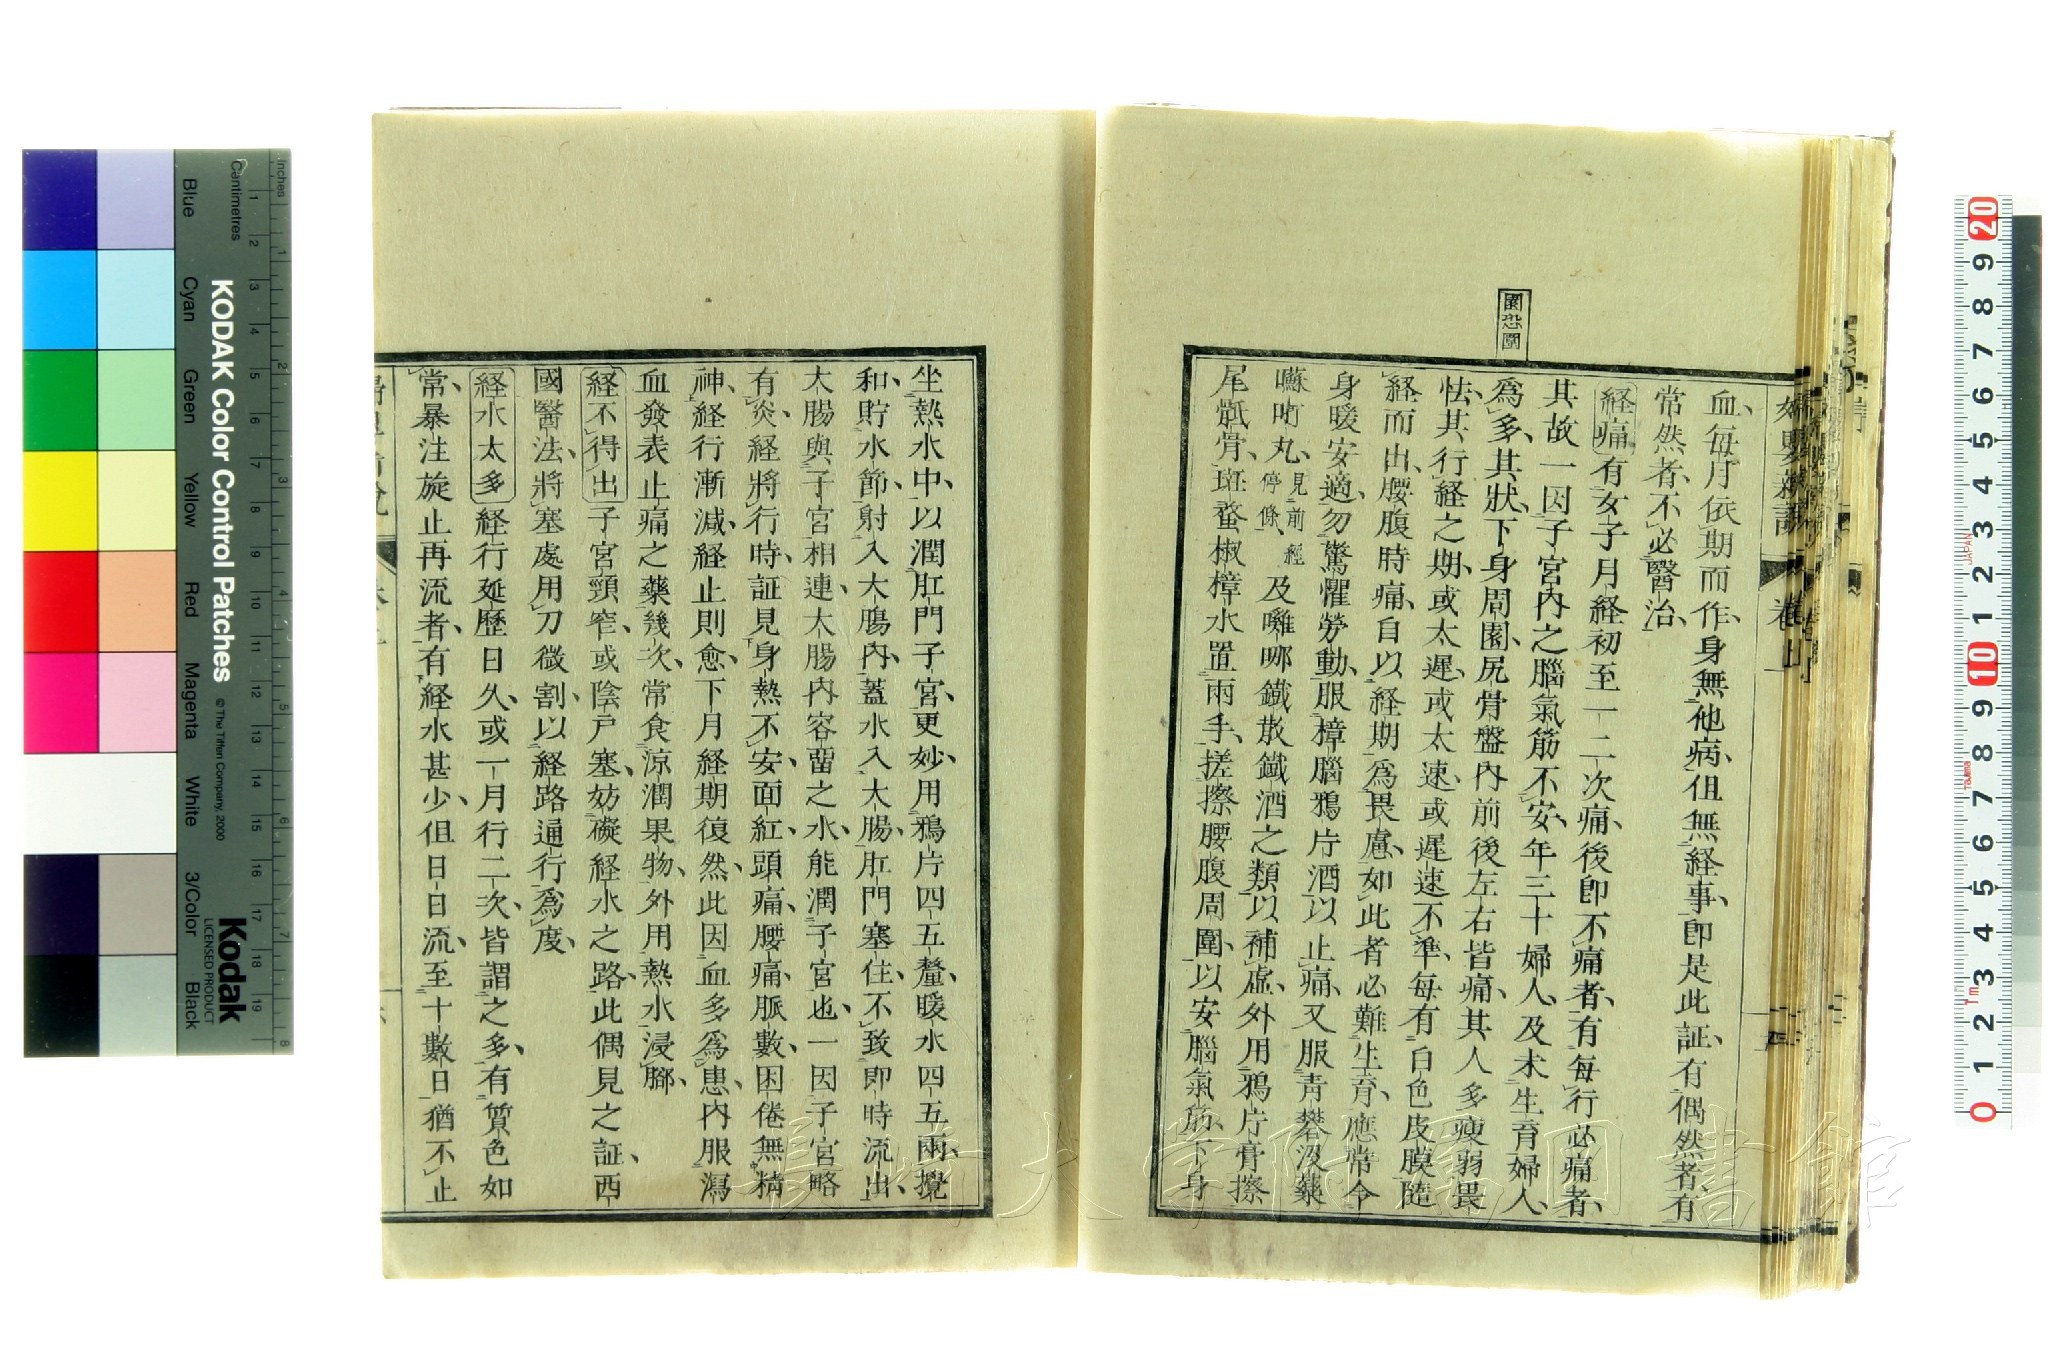 園恐圍
血、每月依期而作、身無他病、但無経事、卽是此証、有偶然者、有
常然者、不必醫治、
経痛有女子月経初至一二次痛、後卽不痛者、有每行必痛者、
其故一因子宮內之腦氣筋不安、年三十婦人、及未生育婦人、
爲多、其狀、下身周園、尻骨盤內前後左右皆痛、其人多瘦弱畏
怯、其行経之期、或太遲、或太速、或遲速不準、每有白色皮膜隨
経而出、腰腹時痛、自以経期爲畏慮、如此者必難生育、應常令
身暖安適、勿驚懼勞動、服樟腦鴉片酒以止痛、又服靑礬沒藥
嚥㕸丸、見前經停條、及囄哪鐵散鐵酒之類以補虛、外用鴉片膏擦
尾骶骨、斑蝥椒樟水置兩手、搓擦腰腹周圍、以安腦氣筋、下身
坐熱水中、以潤肛門子宮、更妙、用鴉片四五釐、暖水四五兩、攪
和、貯水節、射入大腸內、蓋水入大腸、肛門塞住、不致卽時流出、
大腸與子宮相連、大腸內容畱之水、能潤子宮也、一因子宮略
有炎、経將行時、証見身熱不安、面紅、頭痛、腰痛、脈數、困倦無精
神、経行漸減、経止則愈、下月経期復然、此因血多爲患、內服瀉
血發表止痛之藥幾次、常食涼潤果物、外用熱水浸腳、
経不得出子宮頸窄、或陰戶塞、妨礙経水之路、此偶見之証、西
國醫法、將塞處用刀微割、以経路通行爲度、
経水太多経行延歷日久、或一月行二次、皆謂之多、有質色如
常、暴注旋止再流者、有経水甚少、但日日流、至十數日猶不止
KODAK Color Control Patches
© The Tiffen Company, 2000
Kodak
LICENSED PRODUCT
Inches
Centimetres
Blue
Cyan
Green
Yellow
Red
Magenta
White
3/Color
Black
長崎大学附属図書館